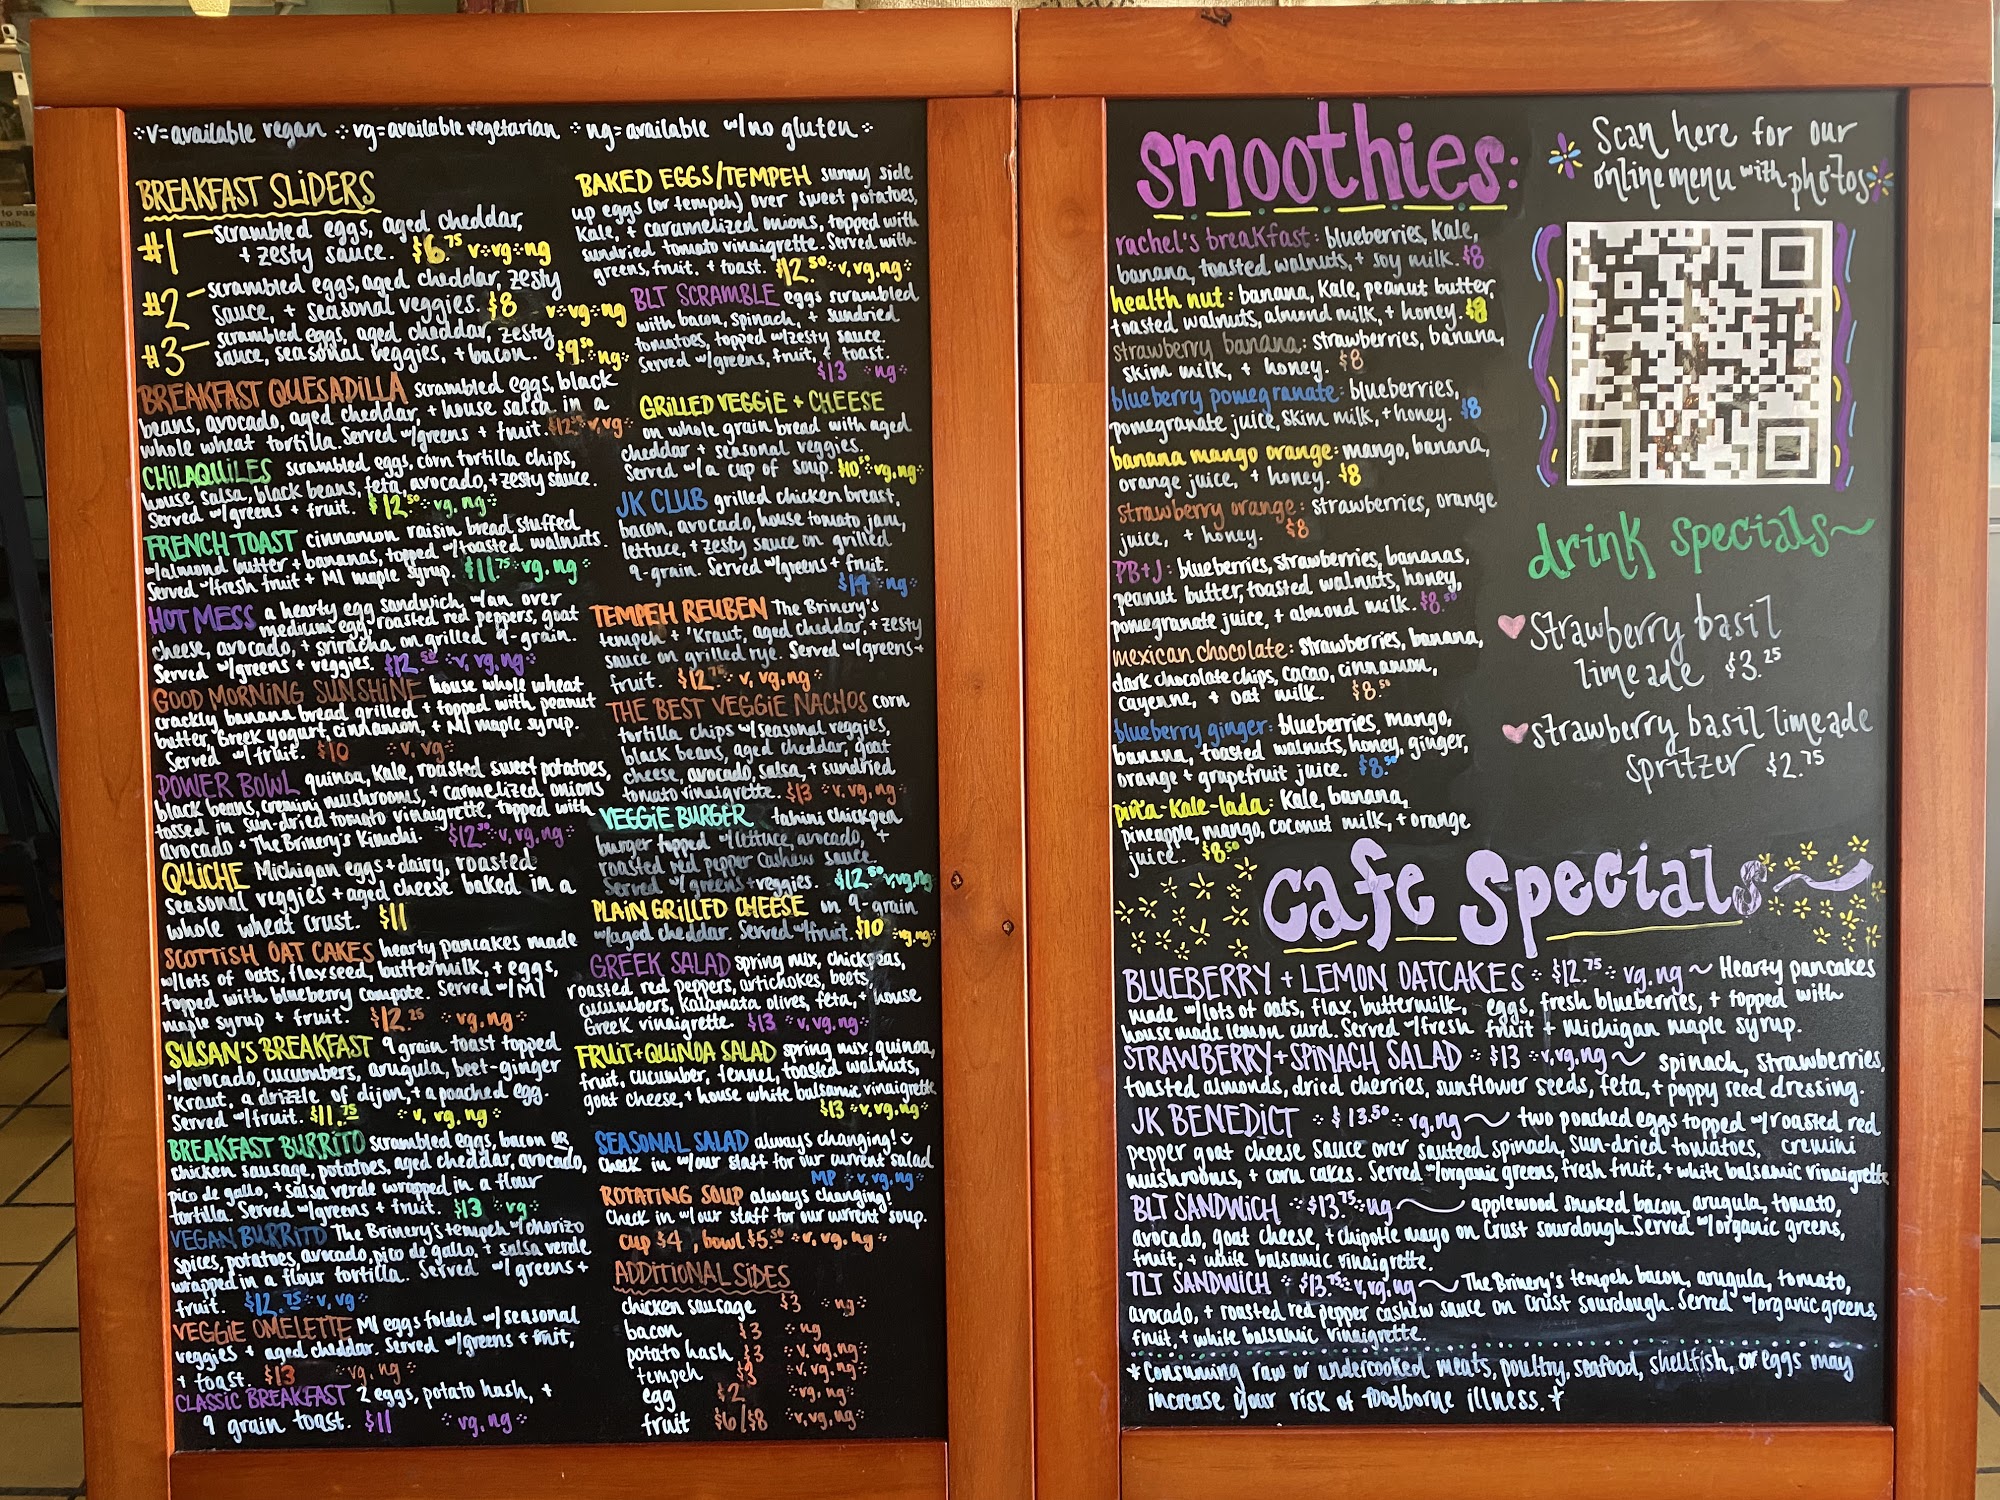 ·:·v=available vegan ·:· vg=available vegetarian ·:· ng=available w/no gluten·:·
BREAKFAST SLIDERS
#1 — scrambled eggs, aged cheddar,
+ zesty sauce. $6.75 v·:·vg·:·ng
#2 — scrambled eggs, aged cheddar, zesty
sauce, + seasonal veggies. $8 v·:·vg·:·ng
#3 — scrambled eggs, aged cheddar, zesty
sauce, seasonal veggies, + bacon. $9.50 ·:·ng·:·
BREAKFAST QUESADILLA scrambled eggs, black
beans, avocado, aged cheddar, + house salsa in a
whole wheat tortilla. Served w/greens + fruit. v, vg·:·
CHILAQUILES scrambled eggs, corn tortilla chips,
house salsa, black beans, feta, avocado, + zesty sauce.
Served w/greens + fruit. $12.50 ·:· vg, ng·:·
FRENCH TOAST cinnamon raisin bread stuffed
w/almond butter + bananas, topped w/toasted walnuts.
Served w/fresh fruit + MI maple syrup. $11.75 ·:· vg, ng ·:·
HOT MESS a hearty egg sandwich, w/an over
medium egg, roasted red peppers, goat
cheese, avocado, + sriracha on grilled 9-grain.
Served w/greens + veggies. $12.50 ·:· v, vg, ng·:·
GOOD MORNING SUNSHINE house whole wheat
crackly banana bread grilled + topped with peanut
butter, Greek yogurt, cinnamon, + MI maple syrup.
Served w/fruit. $10 ·:· v, vg·:·
POWER BOWL quinoa, kale, roasted sweet potatoes,
black beans, cremini mushrooms, + carmelized onions
tossed in sun-dried tomato vinaigrette, topped with
avocado + The Brinery's Kimchi. $12.50 ·:· v, vg, ng·:·
QUICHE Michigan eggs + dairy, roasted
seasonal veggies + aged cheese baked in a
whole wheat crust. $11
SCOTTISH OAT CAKES hearty pancakes made
w/lots of oats, flaxseed, buttermilk, + eggs,
topped with blueberry compote. Served w/MI
maple syrup + fruit. $12.25 ·:· vg, ng·:·
SUSAN'S BREAKFAST 9 grain toast topped
w/avocado, cucumbers, arugula, beet-ginger
'Kraut, a drizzle of dijon, + a poached egg.
Served w/fruit. $11.75 ·:· v, vg, ng ·:·
BREAKFAST BURRITO scrambled eggs, bacon OR
chicken sausage, potatoes, aged cheddar, avocado,
pico de gallo, + salsa verde wrapped in a flour
tortilla. Served w/greens + fruit. $13 ·:· vg·:·
VEGAN BURRITO The Brinery's tempeh w/chorizo
spices, potatoes, avocado, pico de gallo, + salsa verde
wrapped in a flour tortilla. Served w/greens +
fruit. $12.75 ·:· v, vg ·:·
VEGGIE OMELETTE MI eggs folded w/seasonal
veggies + aged cheddar. Served w/greens + fruit,
+ toast. $13 ·:· vg, ng ·:·
CLASSIC BREAKFAST 2 eggs, potato hash, +
9 grain toast. $11 ·:· vg, ng ·:·
BAKED EGGS/TEMPEH sunny side
up eggs (or tempeh) over sweet potatoes,
Kale, + caramelized onions, topped with
sundried tomato vinaigrette. Served with
greens, fruit, + toast. $12.50 ·:· v, vg, ng·:·
BLT SCRAMBLE eggs scrambled
with bacon, spinach, + sundried
tomatoes, topped w/zesty sauce.
Served w/greens, fruit, + toast.
$13 ·:· ng·:·
GRILLED VEGGIE + CHEESE
on whole grain bread with aged
cheddar + seasonal veggies.
Served w/a cup of soup. ·:·vg, ng·:·
JK CLUB grilled chicken breast,
bacon, avocado, house tomato jam,
lettuce, + zesty sauce on grilled
9-grain. Served w/greens + fruit.
$14 ·:· ng·:·
TEMPEH REUBEN The Brinery's
tempeh + 'Kraut, aged cheddar, + zesty
sauce on grilled rye. Served w/greens +
fruit. $12.75 ·:· v, vg, ng·:·
THE BEST VEGGIE NACHOS corn
tortilla chips w/seasonal veggies,
black beans, aged cheddar, goat
cheese, avocado, salsa, + sundried
tomato vinaigrette. $13 ·:· v, vg, ng·:·
VEGGIE BURGER tahini chickpea
burger topped w/lettuce, avocado, +
roasted red pepper cashew sauce.
Served w/greens + veggies. $12.50 ·:·v, vg, ng·:·
PLAIN GRILLED CHEESE on 9-grain
w/aged cheddar. Served w/fruit. $10 ·:·vg, ng·:·
GREEK SALAD spring mix, chickpeas,
roasted red peppers, artichokes, beets,
cucumbers, kalamata olives, feta, + house
Greek vinaigrette. $13 ·:· v, vg, ng·:·
FRUIT + QUINOA SALAD spring mix, quinoa,
fruit, cucumber, fennel, toasted walnuts,
goat cheese, + house white balsamic vinaigrette
$13 ·:· v, vg, ng·:·
SEASONAL SALAD always changing!
Check in w/our staff for our current salad
MP ·:· v, vg, ng·:·
ROTATING SOUP always changing!
Check in w/our staff for our current soup.
cup $4, bowl $5.50 ·:· v, vg, ng ·:·
ADDITIONAL SIDES
chicken sausage $3 ·:· ng·:·
bacon $3 ·:· ng
potato hash $3 ·:· v, vg, ng·:·
tempeh $3 ·:· v, vg, ng·:·
egg $2 ·:·vg, ng·:·
fruit $6/$8 ·:·v, vg, ng·:·
smoothies:
rachel's breakfast: blueberries, Kale,
banana, toasted walnuts, + soy milk. $8
health nut: banana, Kale, peanut butter,
toasted walnuts, almond milk, + honey. $8
strawberry banana: strawberries, banana,
skim milk, + honey. $8
blueberry pomegranate: blueberries,
pomegranate juice, skim milk, + honey. $8
banana mango orange: mango, banana,
orange juice, + honey. $8
strawberry orange: strawberries, orange
juice, + honey. $8
PB+J: blueberries, strawberries, bananas,
peanut butter, toasted walnuts, honey,
pomegranate juice, + almond milk. $8.50
mexican chocolate: strawberries, banana,
dark chocolate chips, cacao, cinnamon,
cayenne, + oat milk. $8.50
blueberry ginger: blueberries, mango,
banana, toasted walnuts, honey, ginger,
orange + grapefruit juice. $8.50
piña-Kale-lada: Kale, banana,
pineapple, mango, coconut milk, + orange
juice. $8.50
Scan here for our
online menu with photos
drink specials~
strawberry basil
limeade $3.25
strawberry basil limeade
spritzer $2.75
cafe specials~
BLUEBERRY + LEMON OATCAKES ·:· $12.75 ·:· vg, ng ~ Hearty pancakes
made w/lots of oats, flax, buttermilk, eggs, fresh blueberries, + topped with
house made lemon curd. Served w/fresh fruit + Michigan maple syrup.
STRAWBERRY + SPINACH SALAD ·:· $13 ·:·v, vg, ng ~ spinach, strawberries,
toasted almonds, dried cherries, sunflower seeds, feta, + poppy seed dressing.
JK BENEDICT ·:· $13.50 ·:· vg, ng ~ two poached eggs topped w/roasted red
pepper goat cheese sauce over sauteed spinach, sun-dried tomatoes, cremini
mushrooms, + corn cakes. Served w/organic greens, fresh fruit, + white balsamic vinaigrette
BLT SANDWICH ·:· $13.75 ·:· ng ~ applewood smoked bacon, arugula, tomato,
avocado, goat cheese, + chipotle mayo on Crust sourdough. Served w/organic greens,
fruit, + white balsamic vinaigrette.
TLT SANDWICH ·:· $13.75 ·:· v, vg, ng ~ The Brinery's tempeh bacon, arugula, tomato,
avocado, + roasted red pepper cashew sauce on Crust sourdough. Served w/organic greens,
fruit, + white balsamic vinaigrette.
*Consuming raw or undercooked meats, poultry, seafood, shellfish, or eggs may
increase your risk of foodborne illness.*